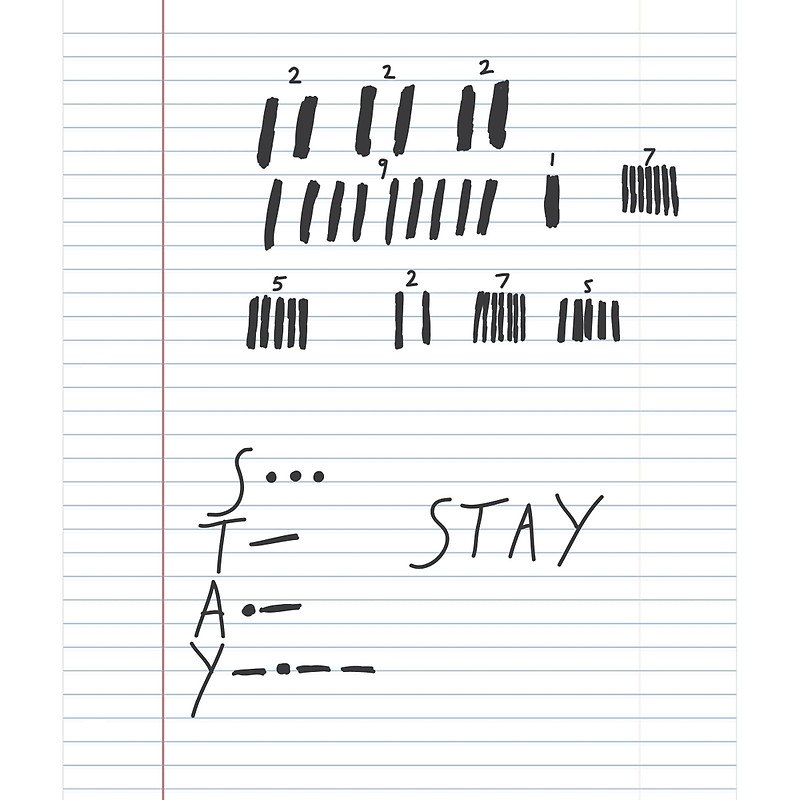 2 2 2
9 1 7
5 2 7 5
S •••
T —
A •—
Y —•——
STAY